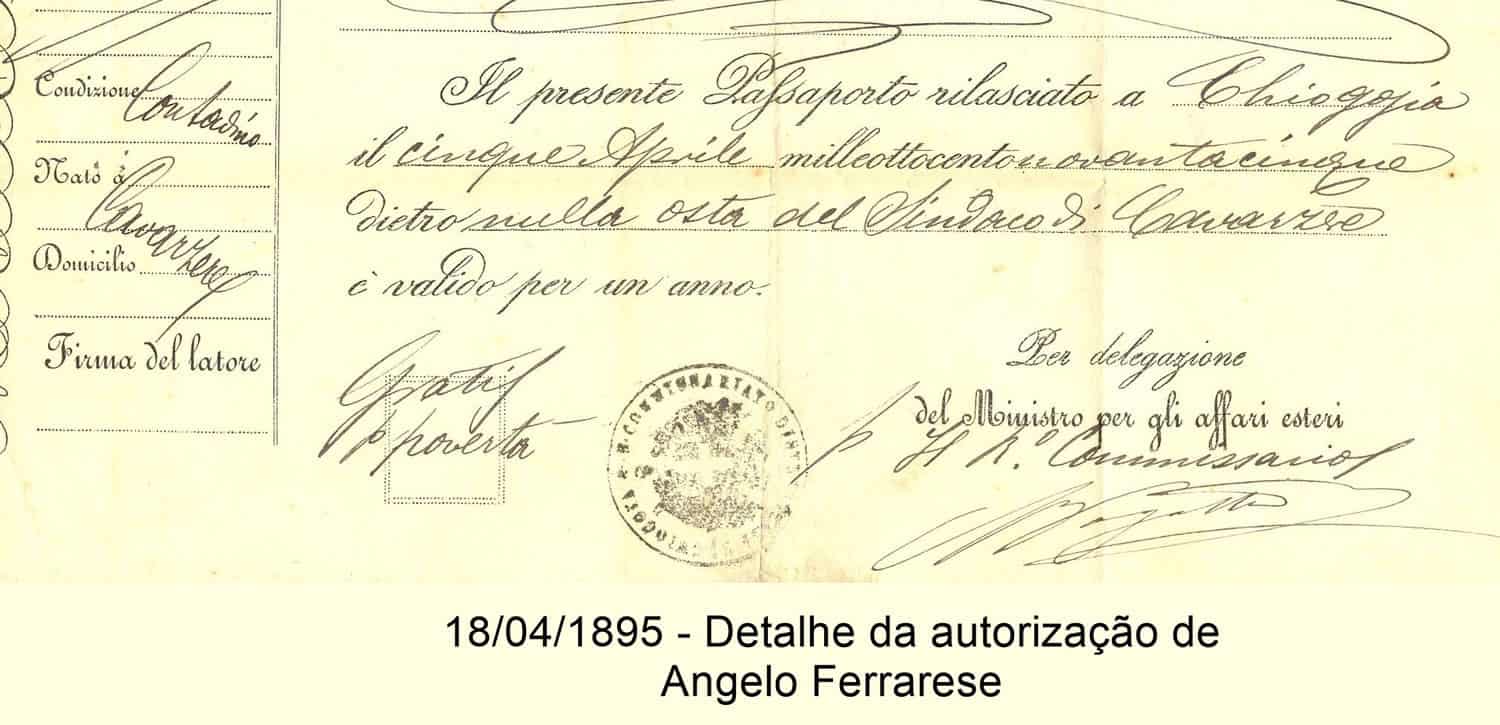 Condizione Contadino
Nato à
Cavarzere
Domicilio
Firma del latore
Il presente Passaporto rilasciato a Chioggia
il cinque Aprile milleottocentonovantacinque
dietro nulla osta del Sindaco di Cavarzere
è valido per un anno.
Gratis
p povertà
R. COMMISSARIATO DIST
CHIOGGIA
Per delegazione
del Ministro per gli affari esteri
p Il R.º Commissario
18/04/1895 - Detalhe da autorização de
Angelo Ferrarese